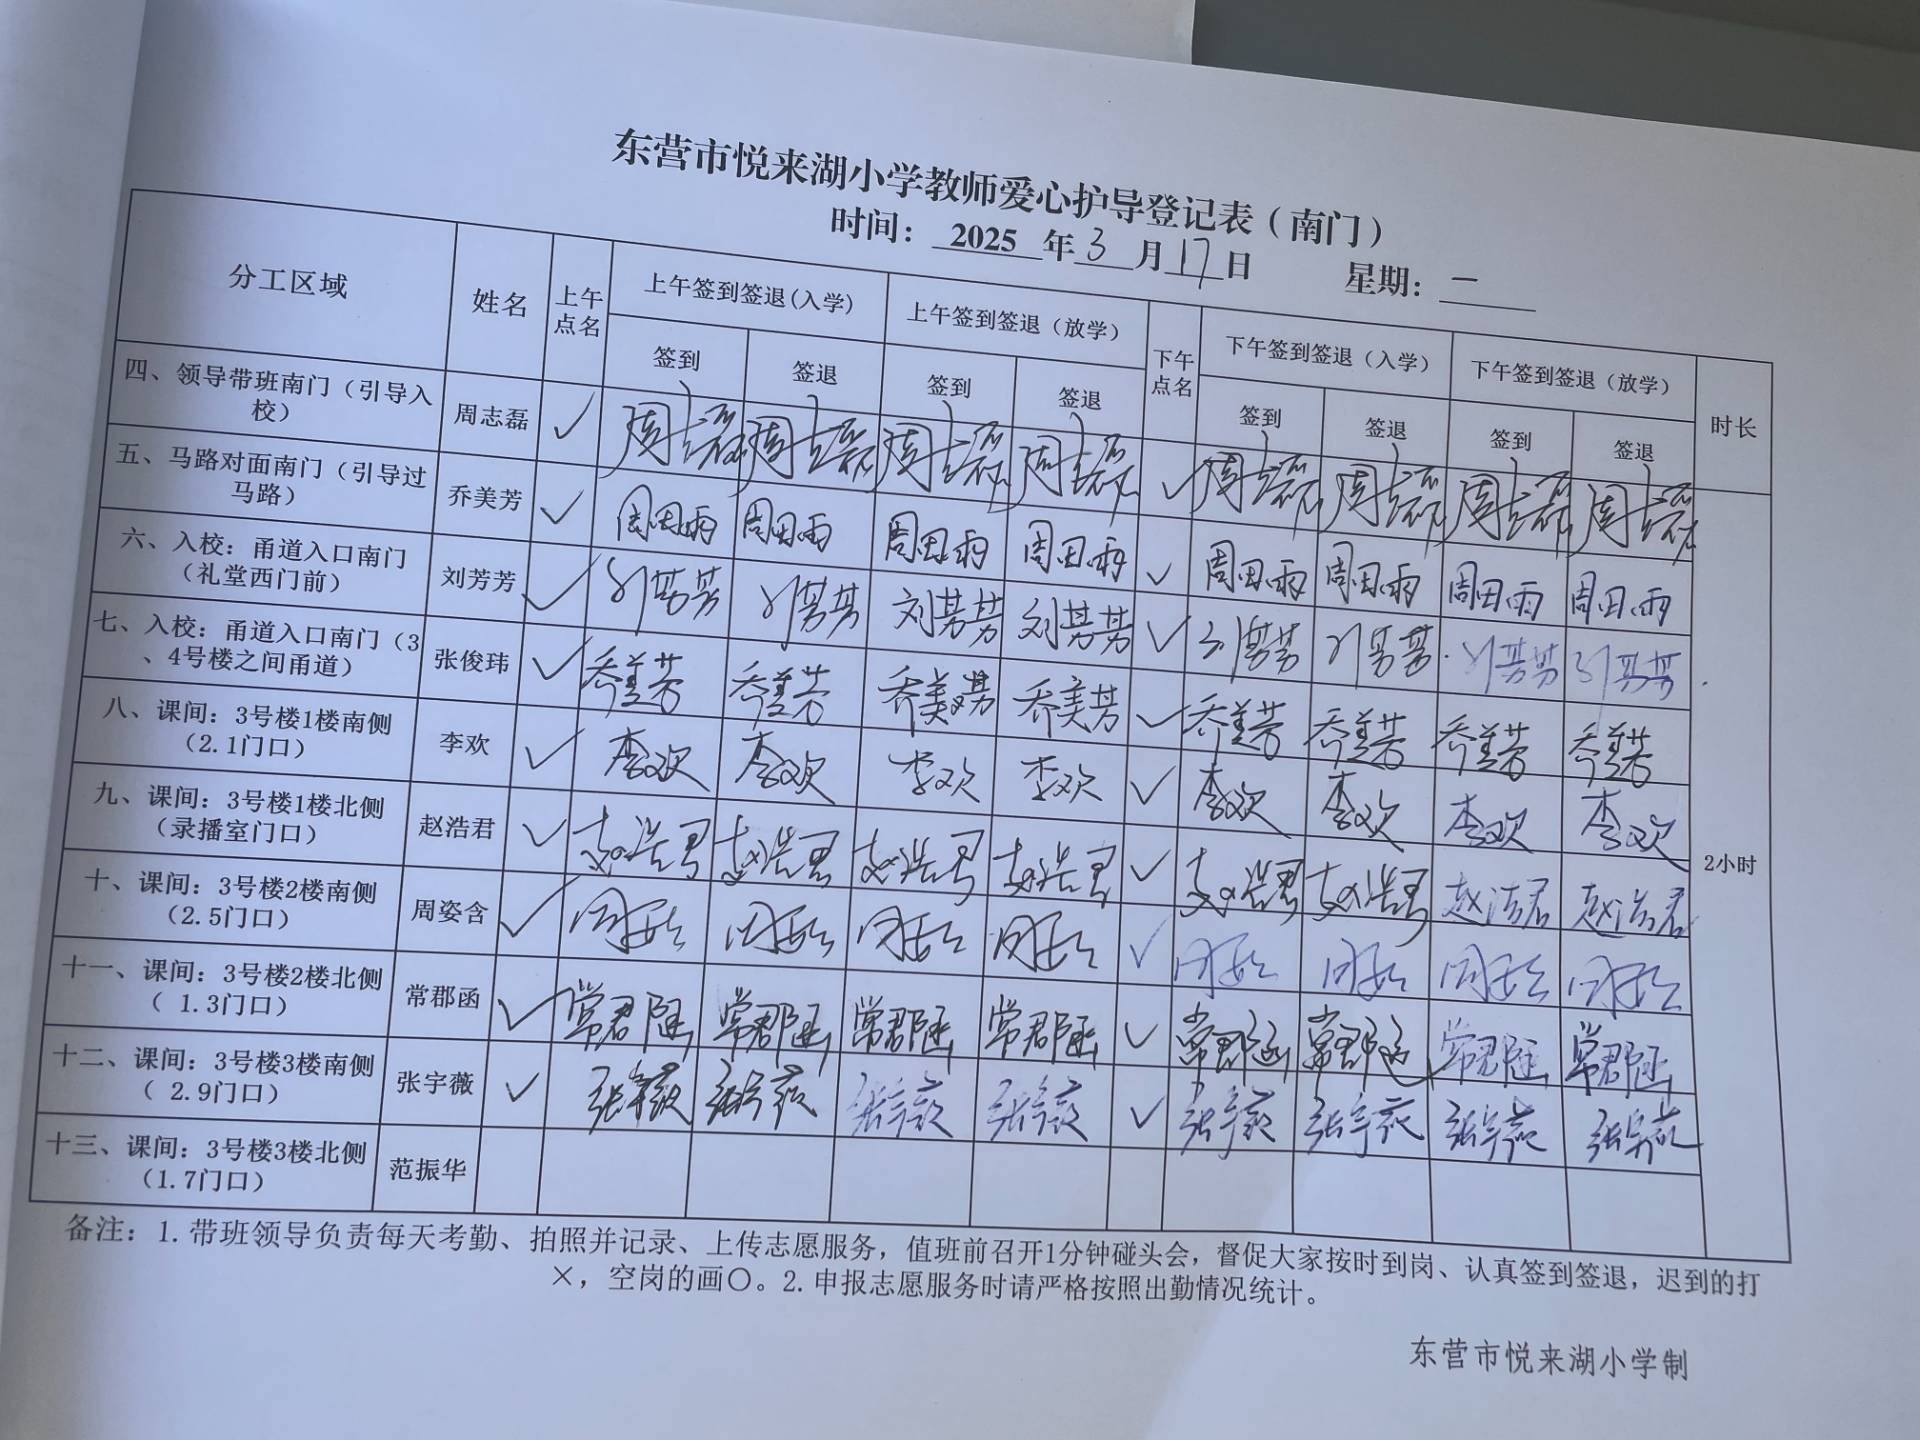 东营市悦来湖小学教师爱心护导登记表（南门）
时间： 2025 年 3 月 17 日 星期： 一
分工区域 姓名 上午点名 上午签到签退(入学) 上午签到签退（放学） 下午点名 下午签到签退（入学） 下午签到签退（放学） 时长
签到 签退 签到 签退 签到 签退 签到 签退
四、领导带班南门（引导入
校） 周志磊 ✓ 周志磊 周志磊 周志磊 周志磊 ✓ 周志磊 周志磊 周志磊 周志磊
五、马路对面南门（引导过
马路） 乔美芳 ✓ 周田雨 周田雨 周田雨 周田雨 ✓ 周田雨 周田雨 周田雨 周田雨
六、入校：甬道入口南门
（礼堂西门前） 刘芳芳 ✓ 刘芳芳 刘芳芳 刘芳芳 刘芳芳 ✓ 刘芳芳 刘芳芳 刘芳芳 刘芳芳
七、入校：甬道入口南门（3
、4号楼之间甬道） 张俊玮 ✓ 乔美芳 乔美芳 乔美芳 乔美芳 ✓ 乔美芳 乔美芳 乔美芳 乔美芳
八、课间：3号楼1楼南侧
（2.1门口） 李欢 ✓ 李欢 李欢 李欢 李欢 ✓ 李欢 李欢 李欢 李欢
九、课间：3号楼1楼北侧
（录播室门口） 赵浩君 ✓ 赵浩君 赵浩君 赵浩君 赵浩君 ✓ 赵浩君 赵浩君 赵浩君 赵浩君
2小时
十、课间：3号楼2楼南侧
（2.5门口） 周姿含 ✓ ✓
十一、课间：3号楼2楼北侧
（ 1.3门口） 常郡函 ✓ 常郡函 常郡函 常郡函 常郡函 ✓ 常郡函 常郡函 常郡函 常郡函
十二、课间：3号楼3楼南侧
（ 2.9门口） 张宇薇 ✓ 张宇薇 张宇薇 张宇薇 张宇薇 ✓ 张宇薇 张宇薇 张宇薇 张宇薇
十三、课间：3号楼3楼北侧
（1.7门口） 范振华
备注：1.带班领导负责每天考勤、拍照并记录、上传志愿服务，值班前召开1分钟碰头会，督促大家按时到岗、认真签到签退，迟到的打
×，空岗的画〇。2.申报志愿服务时请严格按照出勤情况统计。
东营市悦来湖小学制